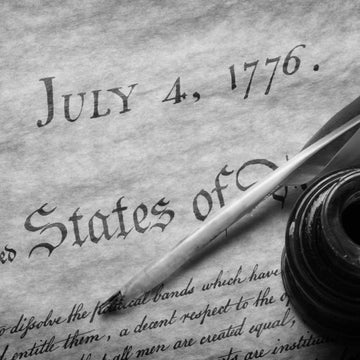 JULY 4, 1776.
ed States of
o diſsolve the political bands which have
d entitle them, a decent respect to the o
that all men are created equal,
ts are institut